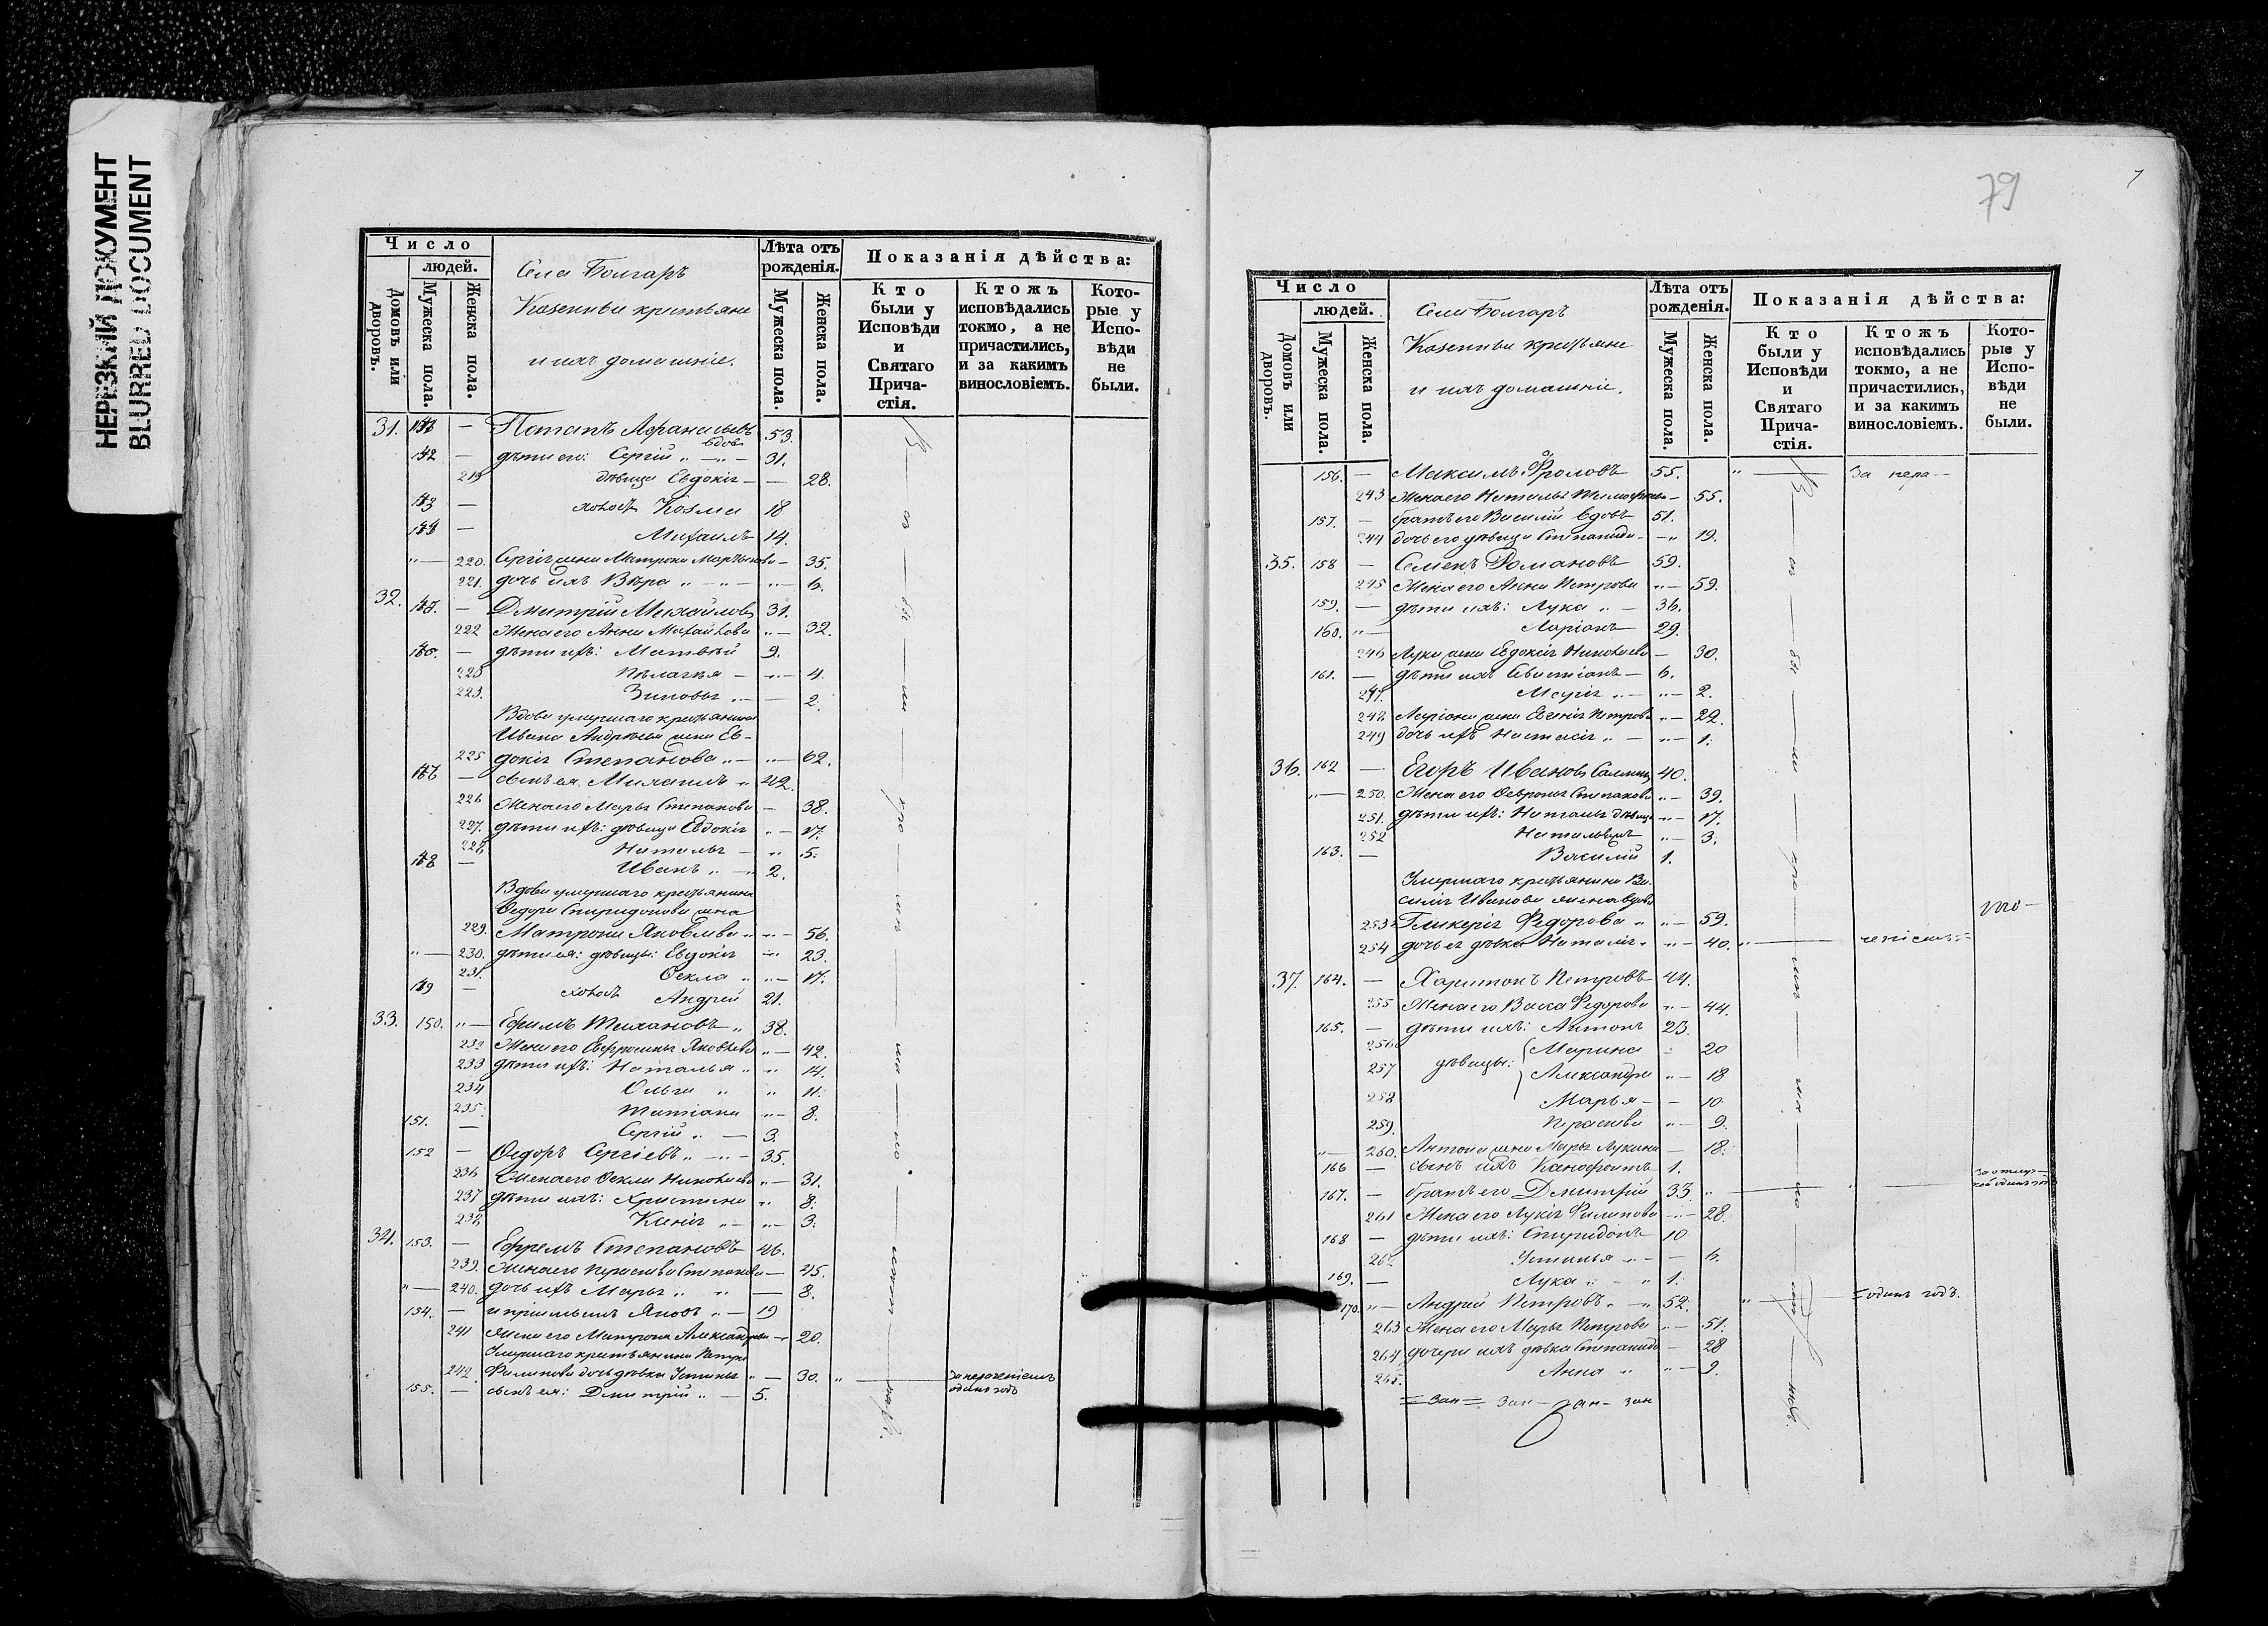 НЕРЕЗКИЙ ДОКУМЕНТ
BLURRED DOCUMENT
Число
людей.
Домовъ или дворовъ.
Мужеска пола.
Женска пола.
Села Болгаръ
Казенныи крестьяне
и ихъ домашніе.
Лѣта отъ рожденія.
Мужеска пола.
Женска пола.
Показанія дѣйства:
Кто были у Исповѣди и Святаго Прича-стія.
Ктожъ исповѣдались токмо, а не причастились, и за какимъ винословіемъ.
Кото-рые у Испо-вѣди не были.
31. — Потапъ Афанасьевъ вдовъ 53.
142 — дѣти его: Сергій 31.
219 дѣвица Евдокія — 28.
143 — холостъ Козма 18
144 — Михаилъ 14.
220. Сергія жена Матрона — 35.
221. дочь ихъ Вѣра — 6.
32. 145. — Дмитрій Михайловъ 31.
222 Жена его Анна Михайлова — 32.
146. — дѣти ихъ: Матвѣй 9.
Пелагея — 4.
223. Зиновья — 2.
Вдова умершаго крестьянина
Ивана Андрѣева жена Ев-
225 докія Степанова — 62.
— сынъ ея Михаилъ 42.
226 Жена его Марья Степанова — 38.
227. дѣти ихъ: дѣвица Евдокія — 17.
228 Наталья — 5.
148 — Иванъ 2.
Вдова умершаго крестьянина
Федора Спиридонова жена
229. Матрона Яковлева — 56.
230. дѣти ея: дѣвицы: Евдокія — 23.
231. Фекла — 17.
149 — холостъ Андрей 21.
33. 150. — Ефимъ 38.
232 Жена его Евфросинья Яковлева — 42.
233 дѣти ихъ: Наталья 14.
234 Ольга 11.
235. Татіана — 8.
151. — Сергій — 3.
152 — Федоръ Сергіевъ — 35.
236 Жена его Фекла Николаева — 31.
237 дѣти ихъ: Христина 8.
238 Ксенія — 3.
34. 153. — Ефремъ Степановъ 46.
239. Жена его Прасковья Степанова — 45.
240. дочь ихъ Марья — 8.
154. — и пріимышъ Яковъ — 19
241 жена его Матрона Александрова — 20.
Умершаго крестьянина Петра
242. Филипова дочь дѣвка Устинья — 30. за нераченіемъ одинъ годъ
155. — сынъ ея: Дмитрій — 5.
79
7
Число
людей.
Домовъ или дворовъ.
Мужеска пола.
Женска пола.
Села Болгаръ
Казенныи крестьяне
и ихъ домашніе.
Лѣта отъ рожденія.
Мужеска пола.
Женска пола.
Показанія дѣйства:
Кто были у Исповѣди и Святаго Прича-стія.
Ктожъ исповѣдались токмо, а не причастились, и за какимъ винословіемъ.
Кото-рые у Испо-вѣди не были.
156. — Максимъ Фроловъ 55. За нера-
243 Жена его Наталья Тимофѣева — 55.
157. — братъ его Василій вдовъ 51.
244 дочь его дѣвица Степанида — 19.
35. 158 — Семенъ Романовъ 59.
245 Жена его Анна Петрова — 59.
159. — дѣти ихъ: Лука — 36.
160. — Ларіонъ 29.
246 Луки жена Евдокія Николаева — 30.
161. — дѣти ихъ Севастіанъ — 6.
247. Марія — 2.
248 Ларіона жена Евгенія Петрова — 22.
249 дочь ихъ Настасія — 1.
36. 162 — Егоръ Ивановъ 40.
250. Жена его Февронья Степанова — 39.
251. дѣти ихъ: Наталья дѣвица — 17.
252 — 3.
163. — Василій 1.
Умершаго крестьянина Ва-
силія Иванова жена вдова
253 Гликерія Федорова — 59.
254 дочь ея дѣвка Наталія — 40. ченіемъ
37. 164. — Харитонъ Петровъ 44.
255 Жена его Васса Федорова — 44.
165. — дѣти ихъ: Антонъ 23.
256 Марина 20
257 дѣвицы: Александра — 18
258 Марья — 10.
259. Прасковья — 9.
260. Антона жена Марья Лукина — 18.
166 — сынъ ихъ Ксенофонтъ 1.
167. — братъ его Дмитрій 33. за отлуч-кой одинъ годъ
261 Жена его Лукія Филипова — 28.
168 — дѣти ихъ: Спиридонъ 10
262 Устинья — 6.
169. — Лука 1.
170. — Андрей Петровъ — 52. одинъ годъ.
263 Жена его Марья Петрова — 51.
264 дочери ихъ дѣвка Степанида — 28
265. Анна — 9.